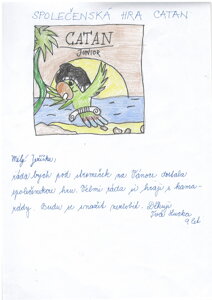 SPOLEČENSKÁ HRA CATAN
CATAN
JUNIOR
Milý Ježíšku,
ráda bych pod stromeček na Vánoce dostala
společenskou hru. Velmi ráda je hraji s kama-
rády. Budu se snažit nezlobit. Děkuji
Vaše
9 let